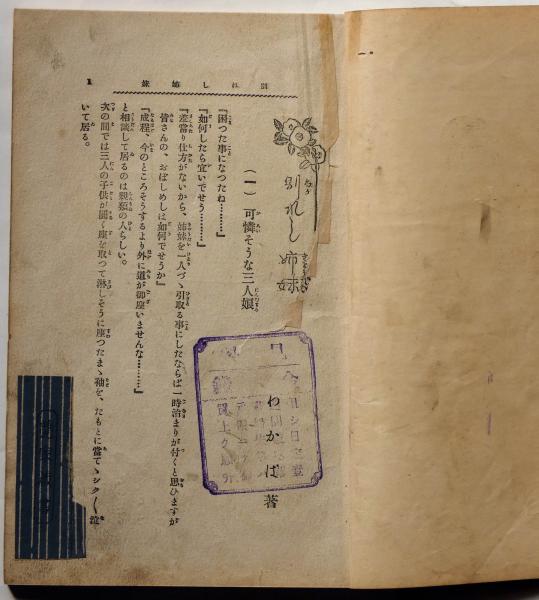 別れし姉妹
(一) 可憐そうな三人娘
わかば 著
『困つた事になつたね………』
『如何したら宜いでせう………』
『差當り仕方がないから、姉妹を一人づゝ引取る事にしたならば一時治まりが付くと思ひますが
皆さんの、おぼしめしは如何でせうか』
『成程、今のところそうするより外に道が御座いませんな………』
と相談して居るのは親類の人らしい。
次の間では三人の子供が圓く座を取つて淋しそうに座つたまゝ袖を、たもとに當てゝシク〱泣
いて居る。
別れし姉妹
1